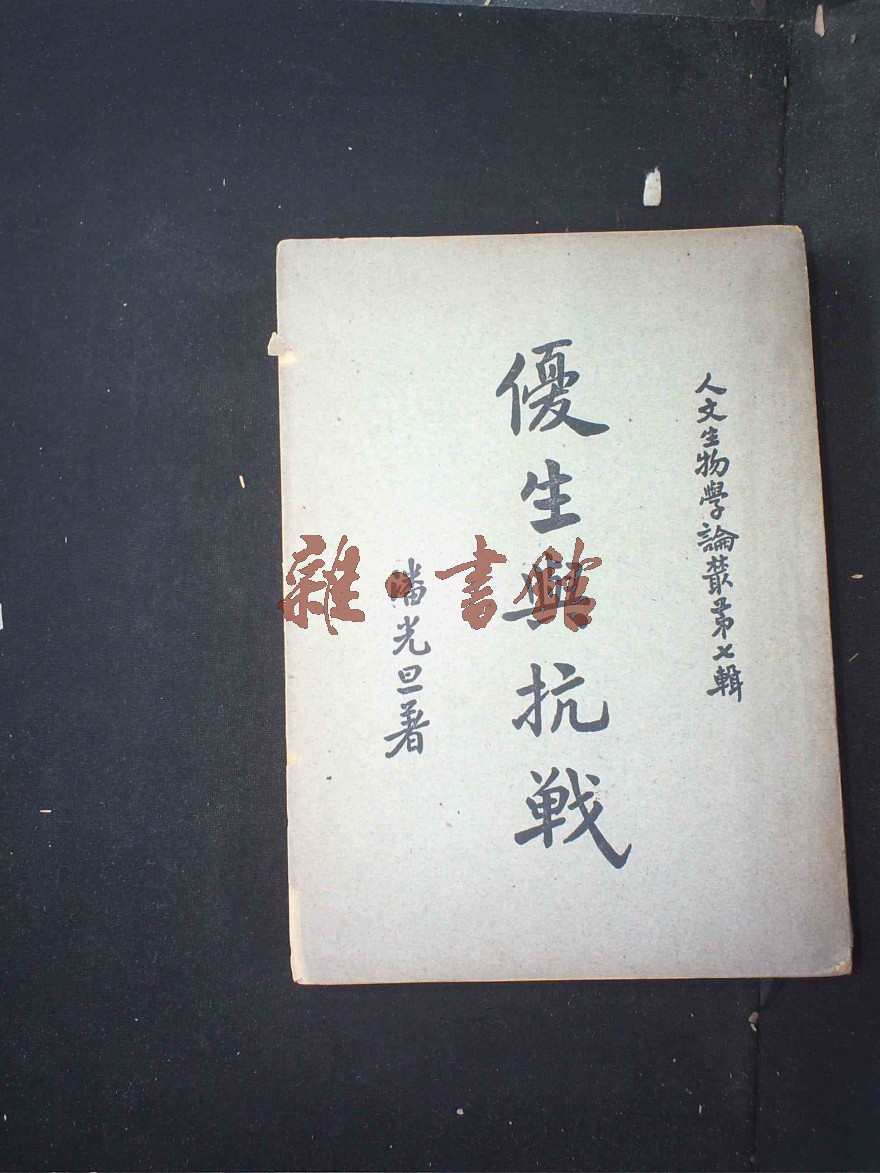 人文生物學論叢第七輯
優生與抗戰
潘光旦著
雜·書館